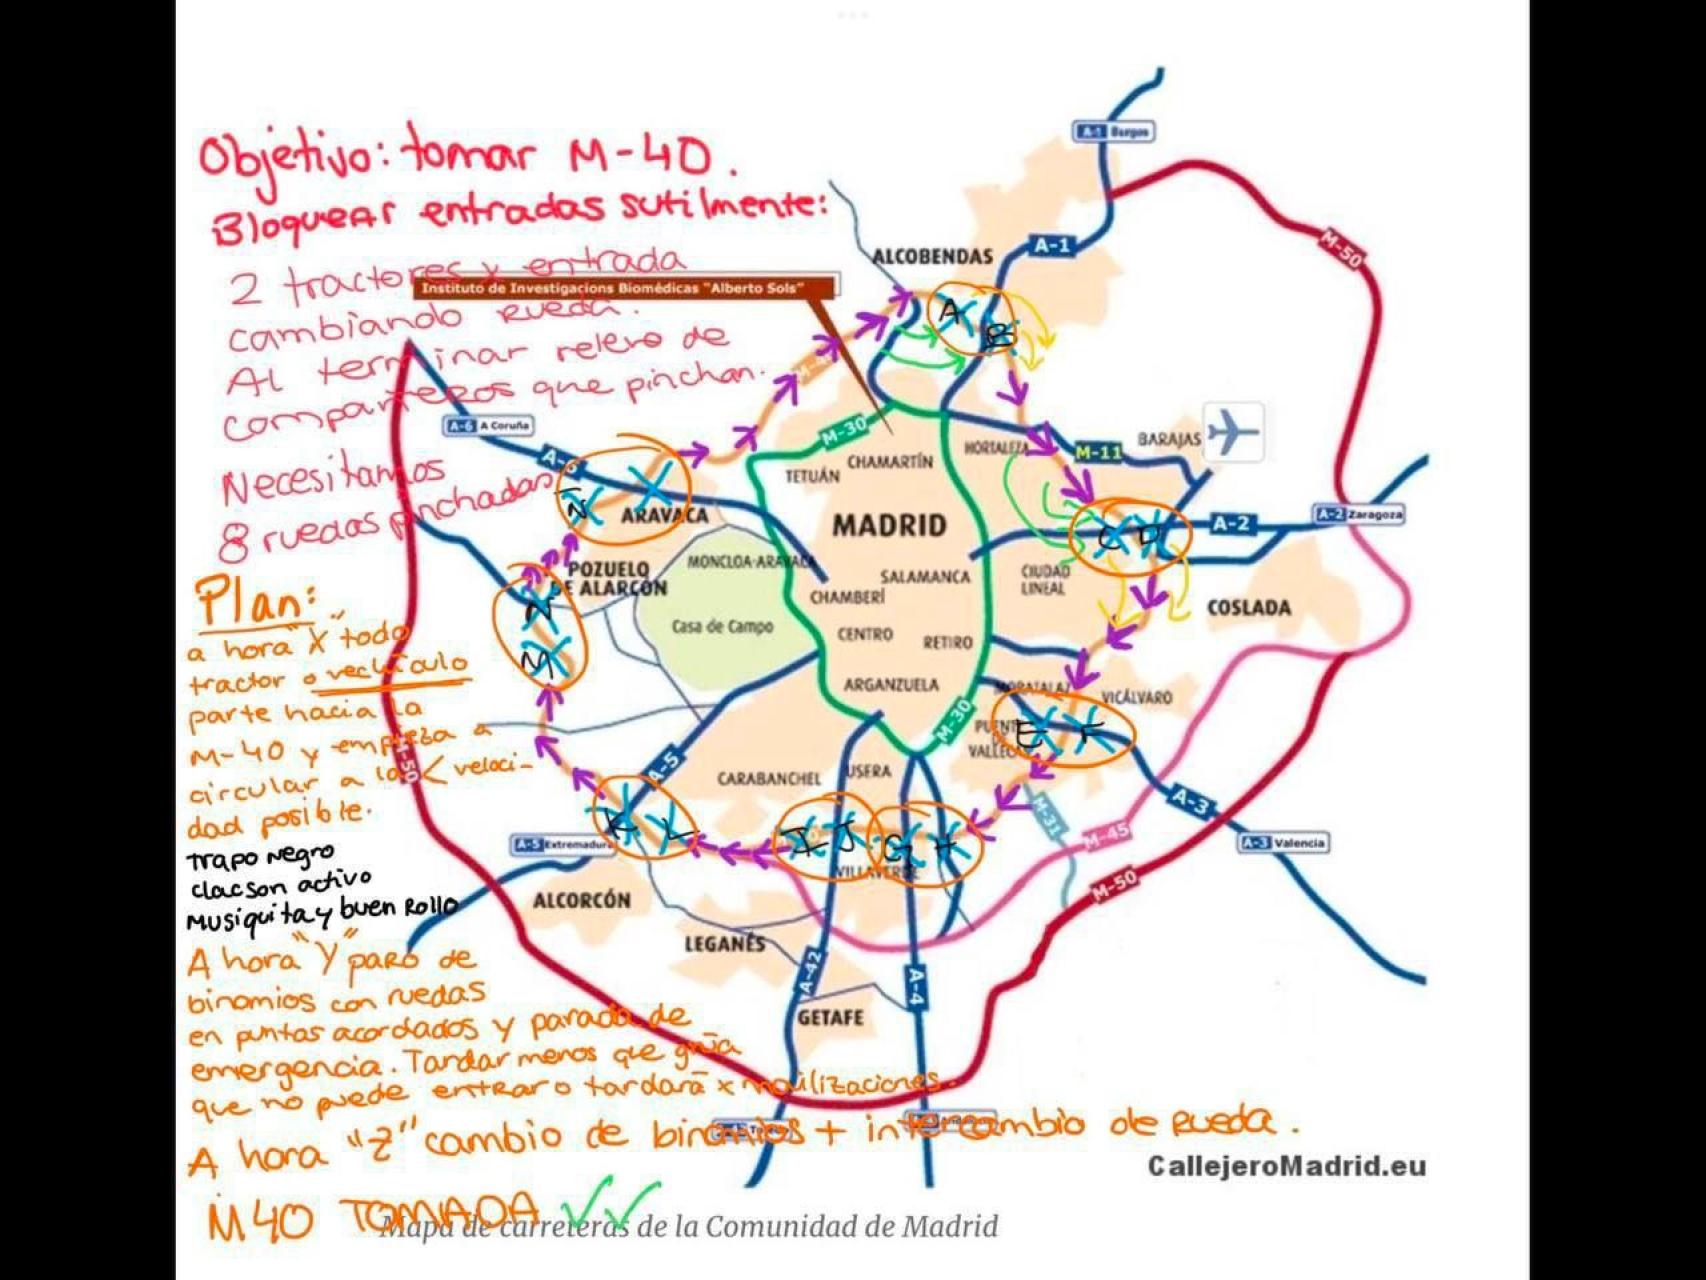 Objetivo: tomar M-40.
Bloquear entradas sutilmente:
2 tractores x entrada
cambiando rueda.
Al terminar relevo de
compañeros que pinchan.
Necesitamos
8 ruedas pinchadas
Plan:
a hora "X" todo
tractor o vechículo
parte hacia la
M-40 y empieza a
circular a la < veloci-
dad posible.
trapo negro
clacson activo
Musiquita y buen Rollo
A hora "Y" paro de
binomios con ruedas
en puntos acordados y parada de
emergencia. Tardar menos que grúa
que no puede entrar o tardará x movilizaciones.
A hora "Z" cambio de binomios + intercambio de rueda.
M40 TOMADA
Instituto de Investigacions Biomédicas "Alberto Sols"
A-1 Burgos
A-1
M-50
ALCOBENDAS
A
B
A-6 A Coruña
A-6
M-30
M-11
BARAJAS
HORTALEZA
CHAMARTÍN
TETUÁN
MADRID
ARAVACA
N
C D
A-2
A-2 Zaragoza
MONCLOA-ARAVACA
POZUELO
DE ALARCÓN
SALAMANCA
CIUDAD
LINEAL
CHAMBERÍ
COSLADA
Casa de Campo
CENTRO
RETIRO
N
M
ARGANZUELA
MORATALAZ
VICÁLVARO
M-30
PUENTE
DE
VALLECAS
E F
M-50
A-5
CARABANCHEL
USERA
A-3
M-31
M-45
A-3 Valencia
K L
I J
G H
VILLAVERDE
A-5 Extremadura
M-50
ALCORCÓN
LEGANÉS
A-42
A-4
GETAFE
CallejeroMadrid.eu
Mapa de carreteras de la Comunidad de Madrid